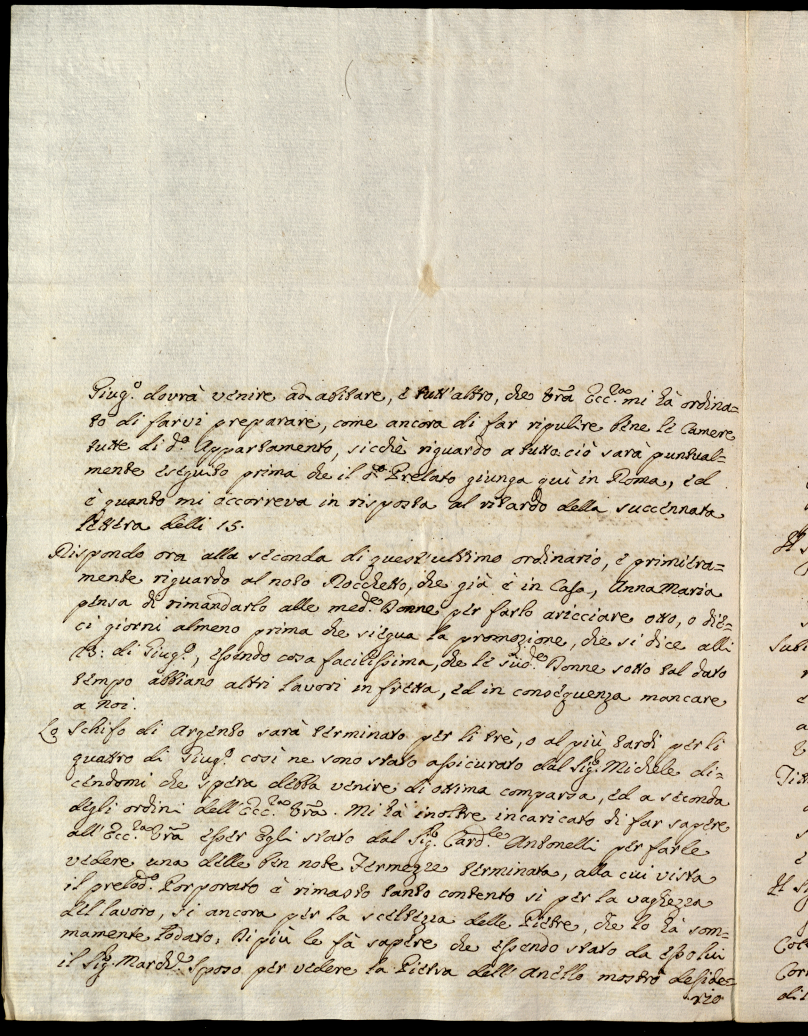 Giug.º dovrà venire ad abitare, e tutt'altro, che Vrã Ecc.za mi hà ordina=
to di farvi preparare, come ancora di far ripulire bene le Camere
tutte di d.º Appartamento, sicchè riguardo a tutto ciò sarà puntual=
mente eseguito prima che il d.º Prelato giunga quì in Roma, ed
è quanto mi occorreva in risposta al ritardo della succennata
lettera delli 15.
Rispondo ora alla seconda di quest'ultimo ordinario, e primiera=
mente riguardo al noto Rocchetto, che già è in Casa, Anna Maria
pensa di rimandarlo alle med.e Donne per farlo aricciare otto, o die=
ci giorni almeno prima che siegua la promozione, che si dice alli
23: di Giug.º, essendo cosa facilissima, che le sud.e Donne sotto tal dato
tempo abbiano altri lavori in fretta, ed in conseguenza mancare
a noi.
Lo Schifo di Argento sarà terminato per li trè, o al più tardi per li
quattro di Giug.º così ne sono stato assicurato dal Sig.r Michele di=
cendomi che spera debba venire di ottima comparsa, ed a seconda
degli ordini dell'Ecc.za Vrã. Mi hà inoltre incaricato di far sapere
all'Ecc.za Vrã esser Egli stato dal Sig.r Card.le Antonelli per farle
vedere una delle ben note Fermezze terminata, alla cui vista
il prelod.º Porporato è rimasto tanto contento si per la vaghezza
del lavoro, si ancora per la sceltezza delle Pietre, che lo hà som=
mamente lodato; Di più le fà sapere che essendo stato da esso lui
il Sig.r March.e Sposo per vedere la Pietra dell'Anello mostrò deside=
rio